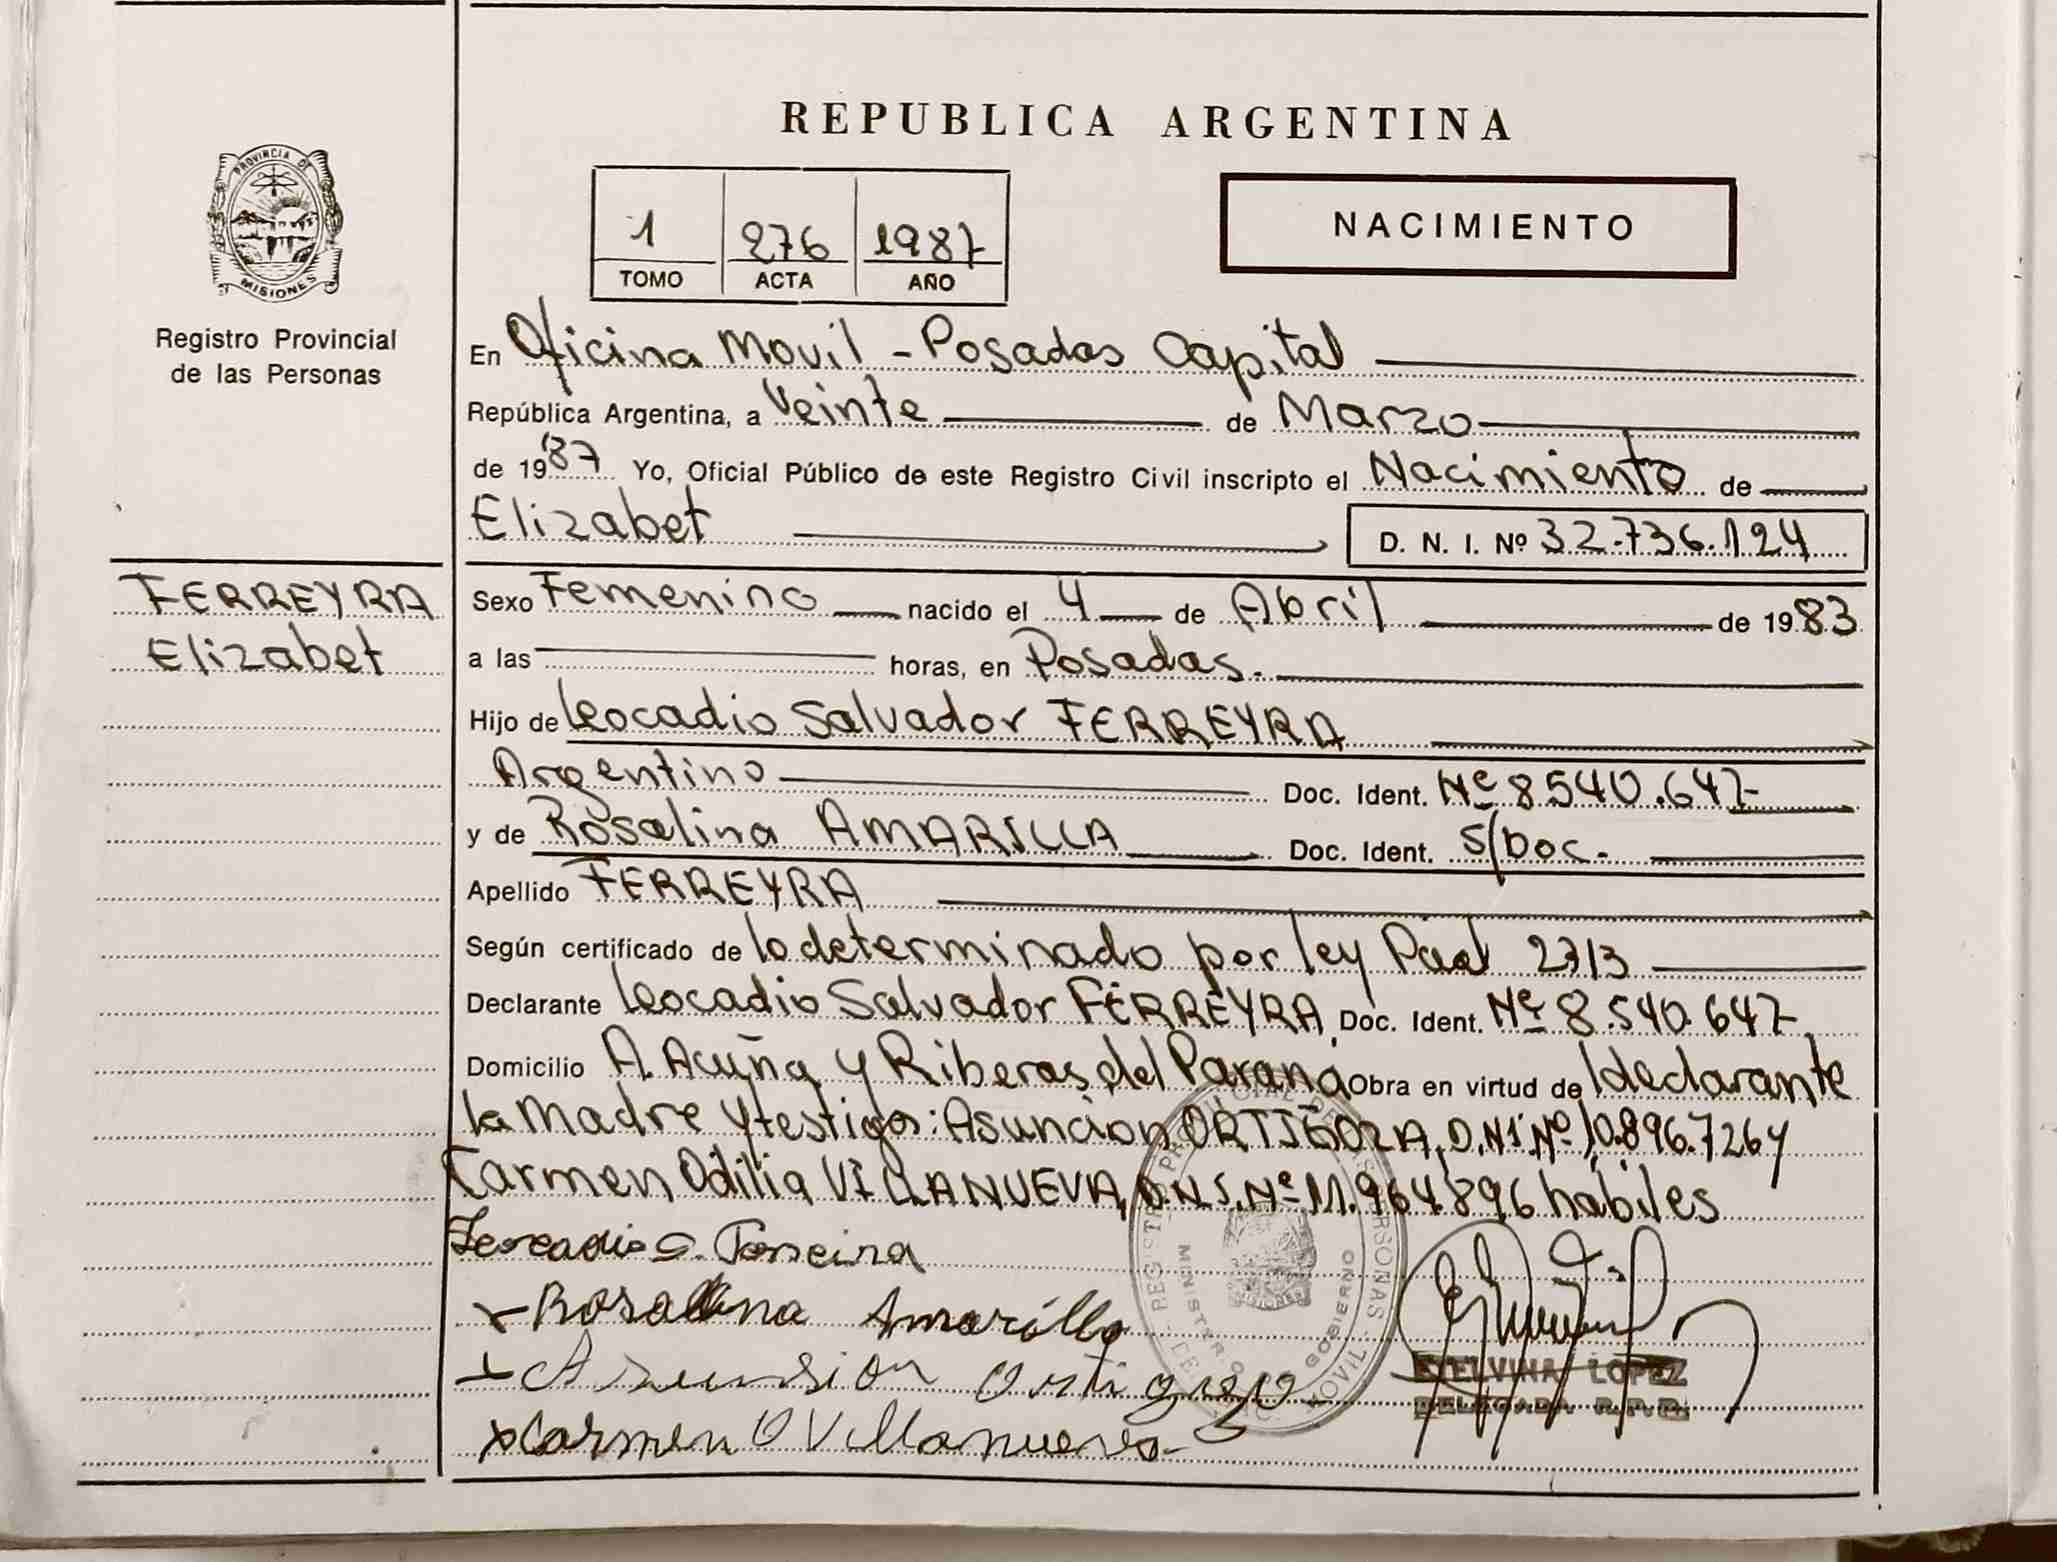 REPUBLICA ARGENTINA
PROVINCIA DE
MISIONES
Registro Provincial
de las Personas
1 276 1987
TOMO ACTA AÑO
NACIMIENTO
En Oficina Movil - Posadas Capital
República Argentina, a Veinte de Marzo
de 1987 Yo, Oficial Público de este Registro Civil inscripto el Nacimiento de
Elizabet
D. N. I. Nº 32.736.124
FERREYRA
Elizabet
Sexo Femenino nacido el 4 de Abril de 1983
a las horas, en Posadas.
Hijo de Leocadio Salvador FERREYRA
Argentino Doc. Ident. Nº 8.540.647
y de Rosalina AMARILLA Doc. Ident. S/Doc.
Apellido FERREYRA
Según certificado de lo determinado por ley 2713
Declarante Leocadio Salvador FERREYRA Doc. Ident. Nº 8.540.647
Domicilio A. Acuña y Riberas del Paraná Obra en virtud de declarante
la Madre y testigos: Asunción ORTIGOZA, D.N.I. Nº 10.896.726 y
Carmen Odilia VILLANUEVA, D.N.I. Nº 11.964.896 habiles
Leocadio S. Ferreira
x Rosalina Amarilla
x Asunsion Ortigoza
x Carmen O Villanueva
REGISTRO PROVINCIAL DE LAS PERSONAS
MINISTERIO GOBIERNO
MOVIL
ETELVINA LOPEZ
DELEGADA R.P.P.